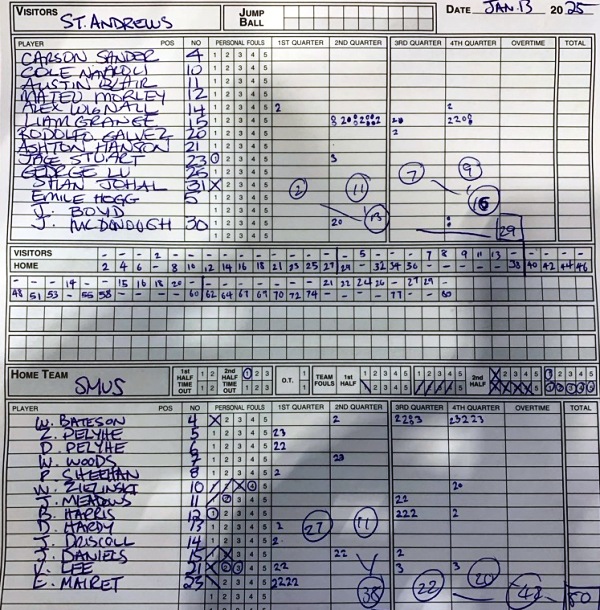 VISITORS ST. ANDREWS JUMP BALL DATE JAN. 13 2025
PLAYER POS NO PERSONAL FOULS 1ST QUARTER 2ND QUARTER 3RD QUARTER 4TH QUARTER OVERTIME TOTAL
CARSON SANDER 4 1 2 3 4 5
COLE 10 1 2 3 4 5
AUSTIN BLAIR 11 1 2 3 4 5
MATEO MORLEY 12 1 2 3 4 5
14 1 2 3 4 5 2 2
LIAM GRANGE 15 1 2 3 4 5
RODOLFO GALVEZ 20 1 2 3 4 5 2
ASHTON HANSON 21 1 2 3 4 5
JACE STUART 23 1 2 3 4 5 3
GEORGE LU 25 1 2 3 4 5 7 9
SHAN JOHAL 31 2 3 4 5 2 11
EMILE HOGG 5 1 2 3 4 5 16
J. BOYD 1 2 3 4 5 13
J. MCDONOUGH 30 1 2 3 4 5 20 29
VISITORS - - - 2 - - - - - - - - - - - 5 - - - 7 8 9 11 13 - - - - -
HOME 2 4 6 - 8 10 12 14 16 18 21 23 25 27 29 - 32 34 36 - - - - - 38 40 42 44 46
- - - 14 - - 15 16 18 20 - - - - - - - 21 22 24 26 - 27 29 -
48 51 53 - 55 58 - - - - 60 62 64 67 69 70 72 74 - - - - 77 - - 80
HOME TEAM SMUS 1st HALF TIME OUT 1 2 1 2 2nd HALF TIME OUT 1 2 3 1 2 3 O.T. 1 2 TEAM FOULS 1st HALF 1 2 3 4 5 2nd HALF
PLAYER POS NO PERSONAL FOULS 1ST QUARTER 2ND QUARTER 3RD QUARTER 4TH QUARTER OVERTIME TOTAL
W. BATESON 4 2 3 4 5 2 2223 23223
Z. PELYHE 5 1 2 3 4 5 23
D. PELYHE 6 1 2 3 4 5 22
W. WOODS 7 1 2 3 4 5 23
P. SHEEHAN 8 1 2 3 4 5 2
W. ZIELINSKI 10 4 5 20
J. MEADOWS 11 2 3 4 5 22
B. HARRIS 12 1 2 3 4 5 222 2
D. HARDY 13 1 2 3 4 5 2 27 11
J. DRISCOLL 14 1 2 3 4 5 2
J. DANIELS 15 3 4 5 22 2
LEE 21 2 3 4 5 22 3 3
E. MAIRET 23 2 3 4 5 2222 38 22 20 42 80